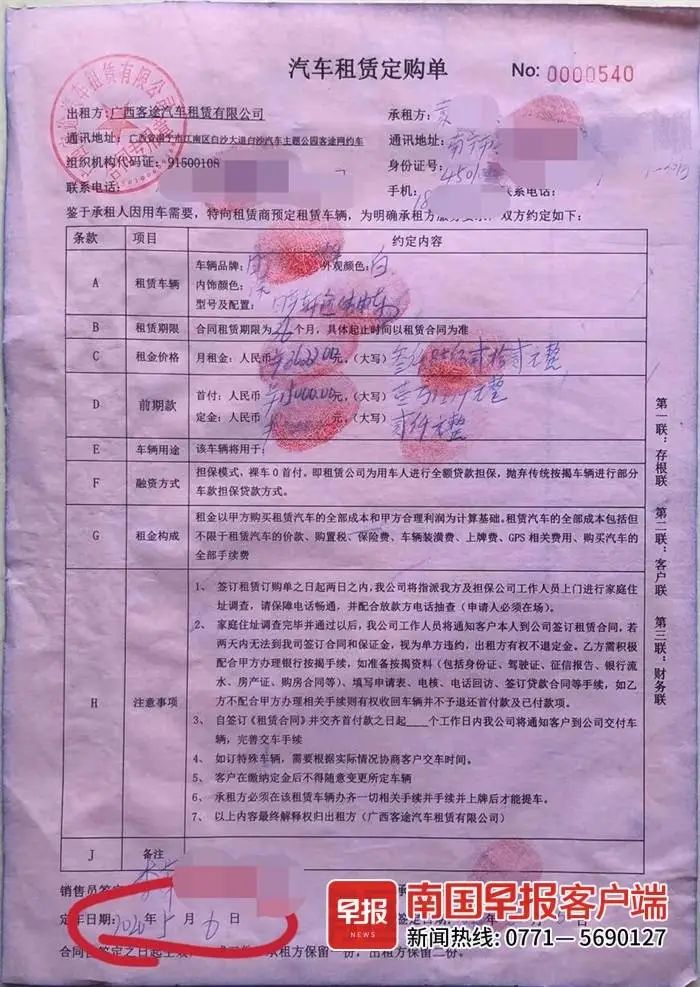 汽车租赁定购单 No: 0000540
出租方：广西客途汽车租赁有限公司 承租方：
通讯地址：广西省南宁市江南区白沙大道白沙汽车主题公园客途网约车 通讯地址：南宁市
组织机构代码证：91500108 身份证号：4501
联系电话： 手机：18 联系电话：
鉴于承租人因用车需要，特向租赁商预定租赁车辆，为明确承租方服务要求，双方约定如下：
条款 项目 约定内容
A 租赁车辆 车辆品牌： 外观颜色：白
内饰颜色：
型号及配置：
B 租赁期限 合同租赁期限为36个月，具体起止时间以租赁合同为准
C 租金价格 月租金：人民币￥3622.00元，(大写) 叁仟陆佰贰拾贰元整
D 前期款 首付：人民币￥15000.00元，(大写) 壹万伍仟元整
定金：人民币 元，(大写) 贰仟元整
E 车辆用途 该车辆将用于：
F 融资方式 担保模式，裸车0首付。即租赁公司为用车人进行全额贷款担保，抛弃传统按揭车辆进行部分
车款担保贷款方式。
G 租金构成 租金以甲方购买租赁汽车的全部成本和甲方合理利润为计算基础。租赁汽车的全部成本包括但
不限于租赁汽车的价款、购置税、保险费、车辆装潢费、上牌费、GPS 相关费用、购买汽车的
全部手续费
H 注意事项
1、 签订租赁订购单之日起两日之内，我公司将指派我方及担保公司工作人员上门进行家庭住
址调查，请保障电话畅通，并配合放款方电话抽查（申请人必须在场）。
2、 家庭住址调查完毕并通过以后，我公司工作人员将通知客户本人到公司签订租赁合同，若
两天内无法到我司签订合同和保证金，视为单方违约，出租方有权不退定金。乙方需积极
配合甲方办理银行按揭手续，如准备按揭资料（包括身份证、驾驶证、征信报告、银行流
水、房产证、购房合同等）、填写申请表、电核、电话回访、签订贷款合同等手续，如乙
方不配合甲方办理相关手续则有权收回车辆并不予退还首付款及已付款项。
3、 自签订《租赁合同》并交齐首付款之日起___个工作日内我公司将通知客户到公司交付车
辆，完善交车手续
4、 如订特殊车辆，需要根据实际情况协商客户交车时间。
5、 客户在缴纳定金后不得随意变更所定车辆
6、 承租方必须在该租赁车辆办齐一切相关手续并手续并上牌后才能提车。
7、 以上内容最终解释权归出租方（广西客途汽车租赁有限公司）
J 备注
第一联：存根联 第二联：客户联 第三联：财务联
销售员签字
定车日期：2020年5月6日 签定日期：
合同自签定之日起生效， 承租方保留一份，出租方保留二份。
早报 NEWS
南国早报客户端
新闻热线：0771—5690127